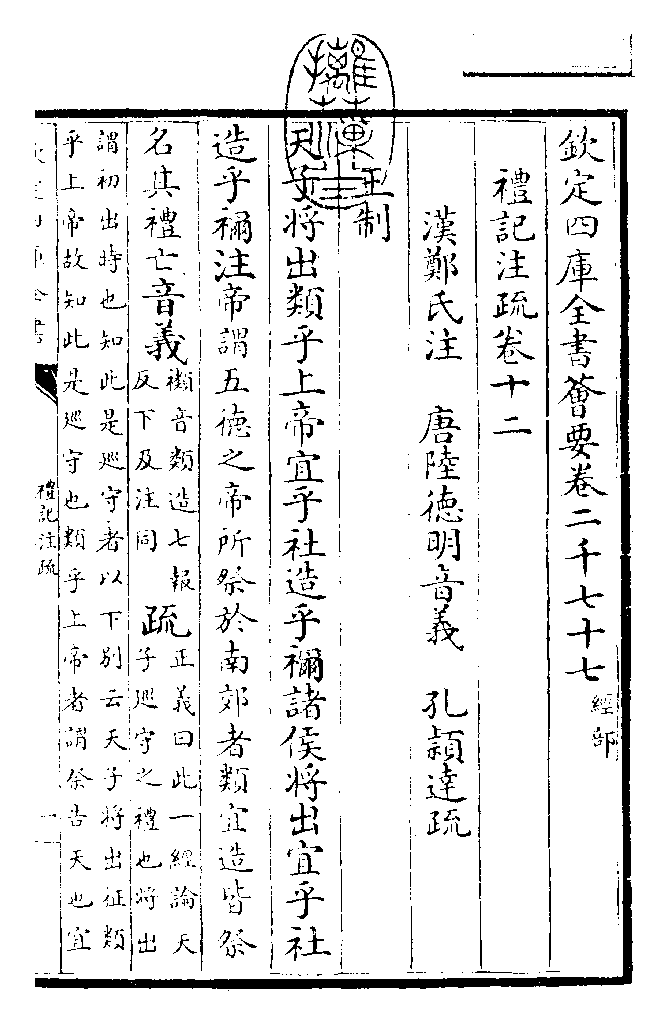 欽定四庫全書薈要卷二千七十七 經部
禮記注疏卷十二
漢鄭氏注 唐陸德明音義 孔穎達疏
王制
天子將出類乎上帝宜乎社造乎禰諸侯將出宜乎社
造乎禰注帝謂五德之帝所祭於南郊者類宜造皆祭
名其禮亡音義
禷音類造七報
反下及注同
疏
正義曰此一經論天
子巡守之禮也將出
謂初出時也知此是巡守者以下別云天子將出征類
乎上帝故知此是巡守也類乎上帝者謂祭告天也宜
禮記注疏
一